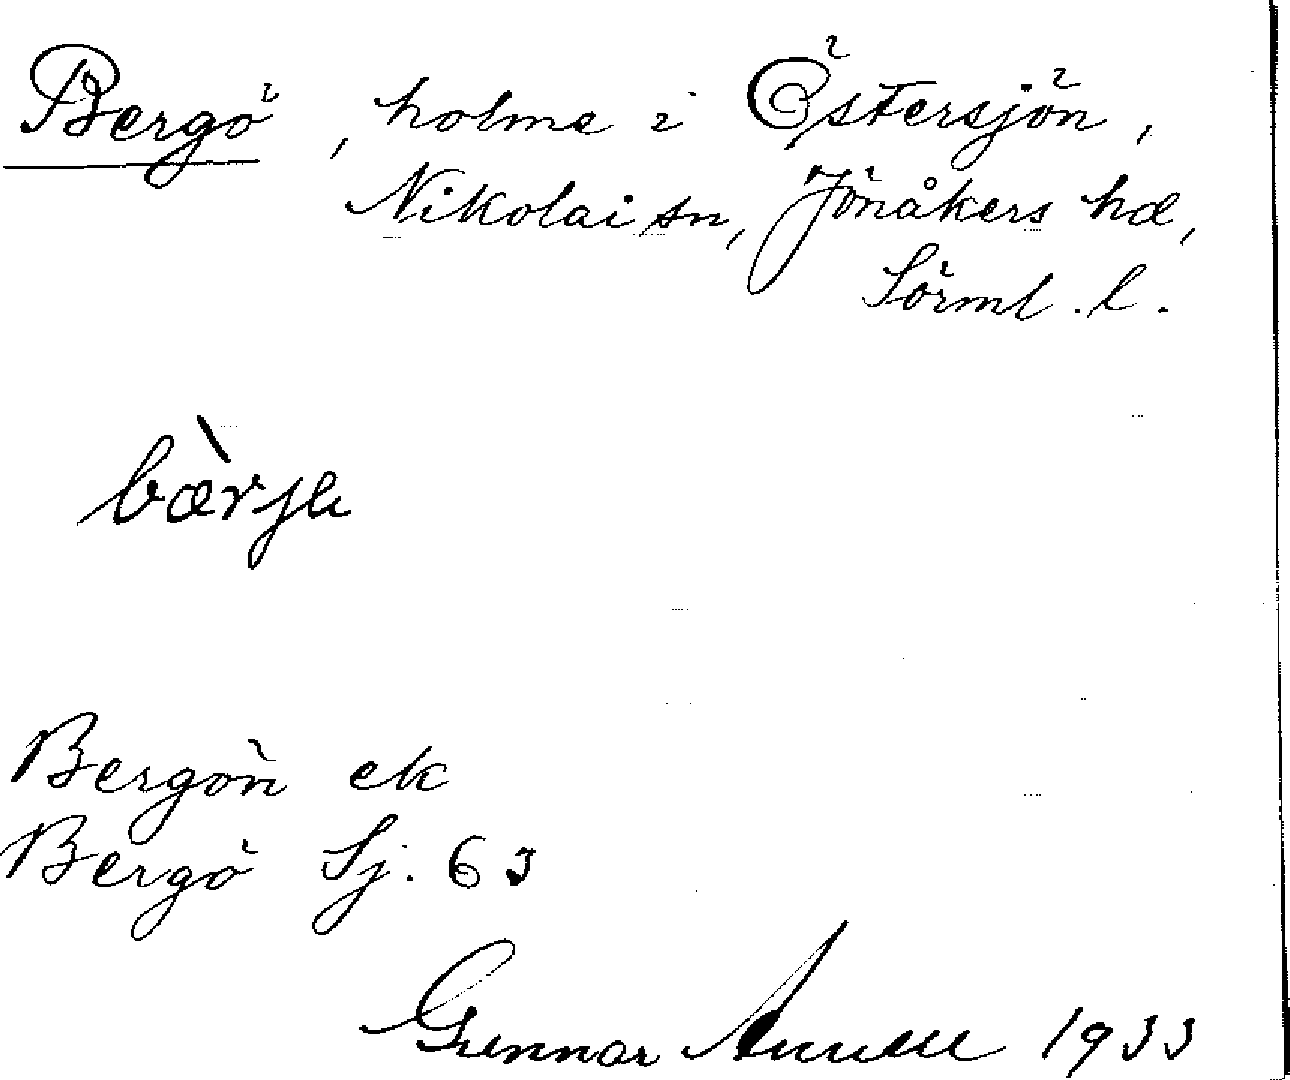 Bergö, holme i Östersjön,
Nikolai sn, Jönåkers hd,
Sörml. l.
Bergön ek
Bergö Sj. 63
Gunnar 1933